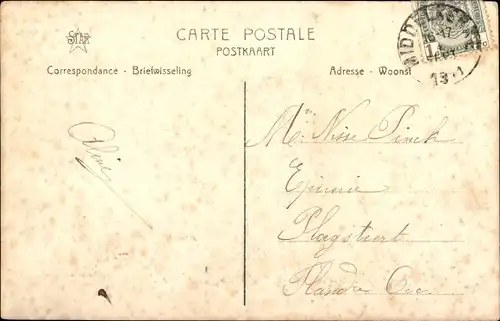 STAR
CARTE POSTALE
POSTKAART
Correspondance - Briefwisseling
Adresse - Woonst
MIDDELKERKE
16-17
1
Aline
Nisse Pinck
Epicerie
Plagstreet
Flandre Occ